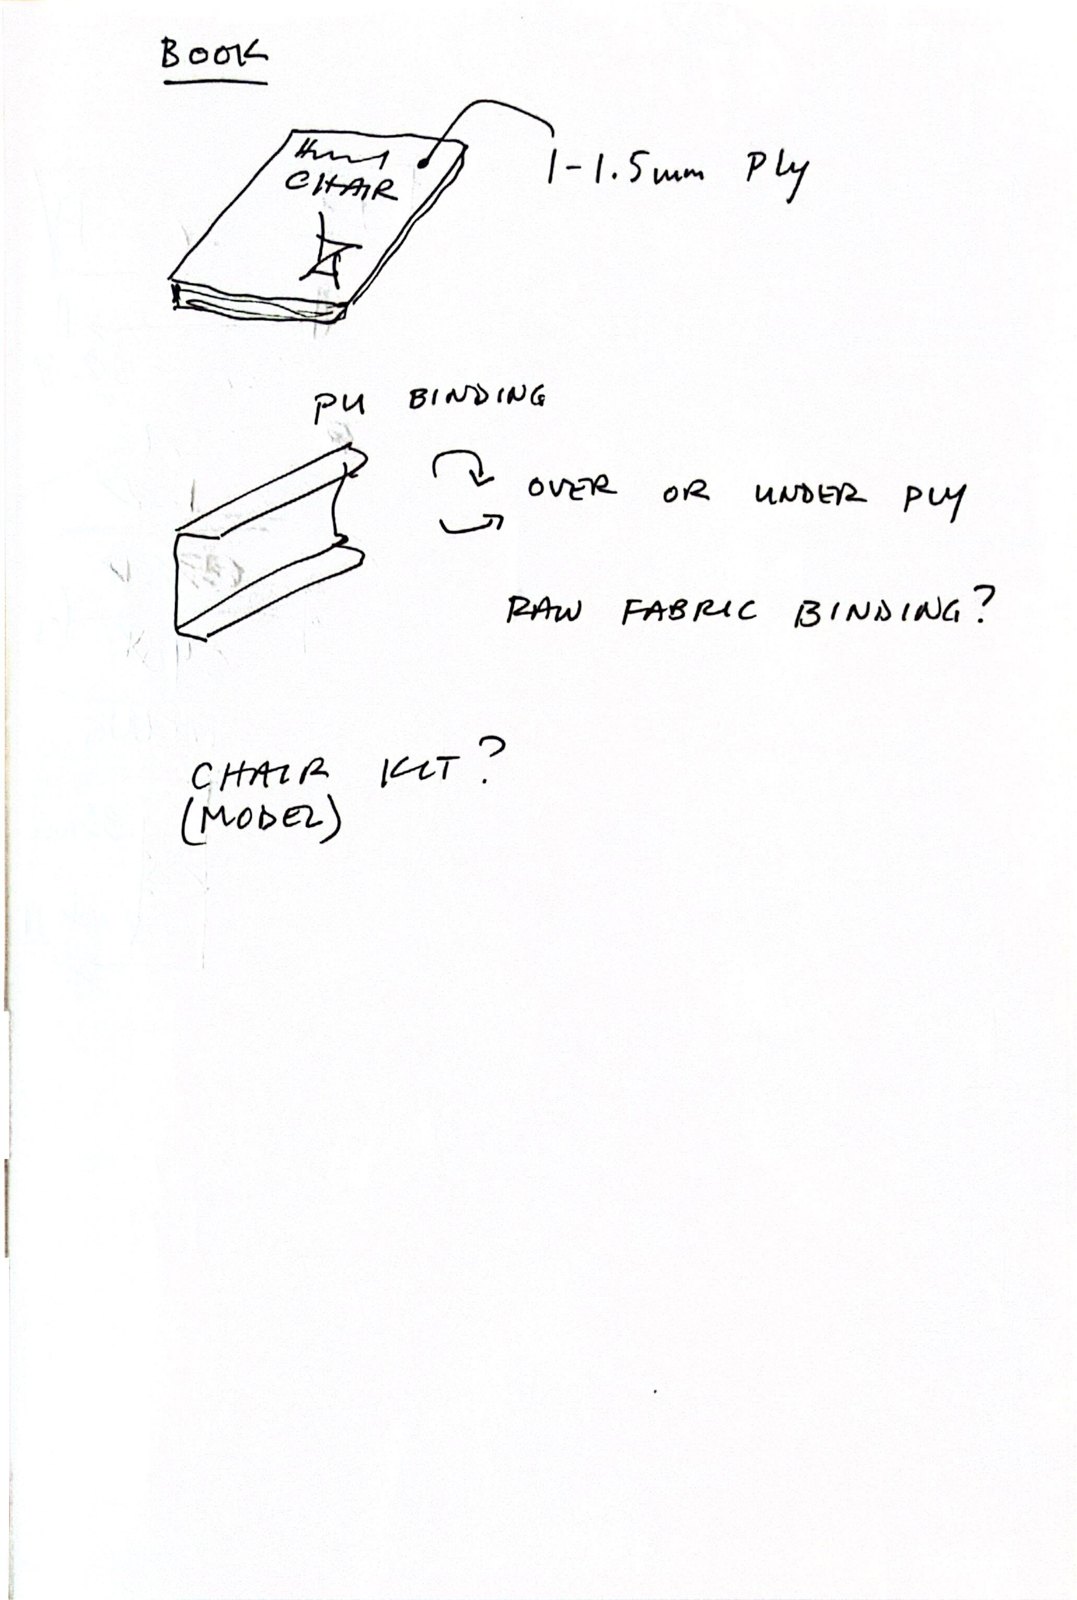 BOOK
CHAIR
1-1.5mm PLY
PU BINDING
OVER OR UNDER PLY
RAW FABRIC BINDING?
CHAIR KIT?
(MODEL)